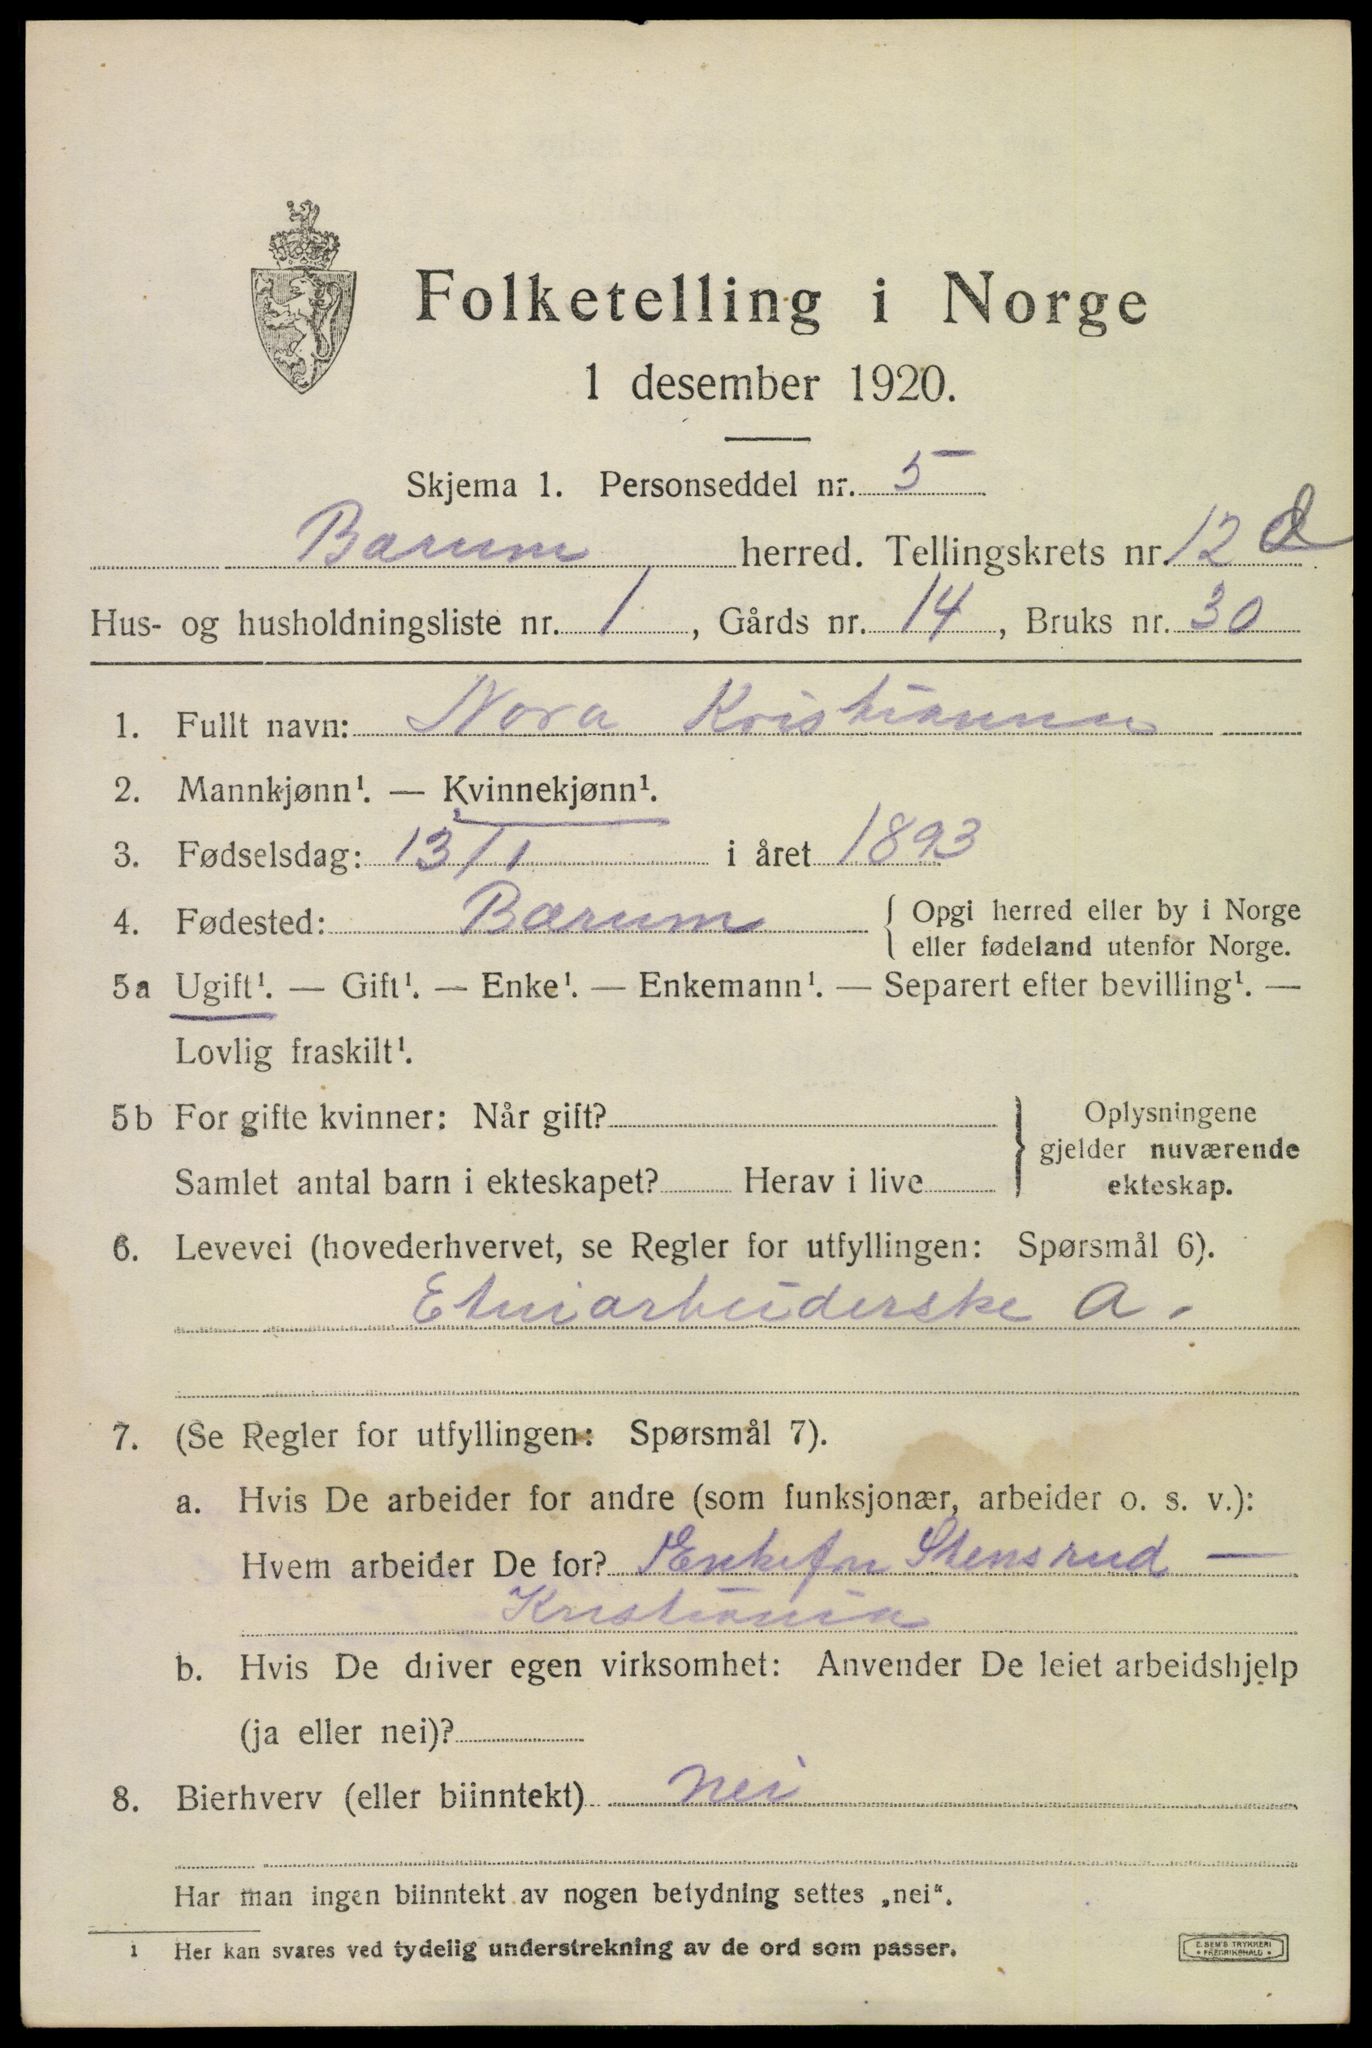 Folketelling i Norge
1 desember 1920.
Skjema 1. Personseddel nr. 5
Bærum herred. Tellingskrets nr. 12 d
Hus- og husholdningsliste nr. 1, Gårds nr. 14, Bruks nr. 30
1. Fullt navn: Nora Kristianna
2. Mannkjønn¹. — Kvinnekjønn¹.
3. Fødselsdag: 13/1 i året 1893
4. Fødested: Bærum { Opgi herred eller by i Norge
eller fødeland utenfor Norge.
5a Ugift¹. — Gift¹. — Enke¹. — Enkemann¹. — Separert efter bevilling¹. —
Lovlig fraskilt¹.
5b For gifte kvinner: Når gift? } Oplysningene
gjelder nuværende
Samlet antal barn i ekteskapet? Herav i live
ekteskap.
6. Levevei (hovederhvervet, se Regler for utfyllingen: Spørsmål 6).
Etuiarbeiderske A.
7. (Se Regler for utfyllingen: Spørsmål 7).
a. Hvis De arbeider for andre (som funksjonær, arbeider o. s. v.):
Hvem arbeider De for? Enkefru Stensrud —
Kristiania
b. Hvis De driver egen virksomhet: Anvender De leiet arbeidshjelp
(ja eller nei)?
8. Bierhverv (eller biinntekt) nei
Har man ingen biinntekt av nogen betydning settes „nei“.
1 Her kan svares ved tydelig understrekning av de ord som passer.
E. SEM'S TRYKKERI
• FREDRIKSHALD •